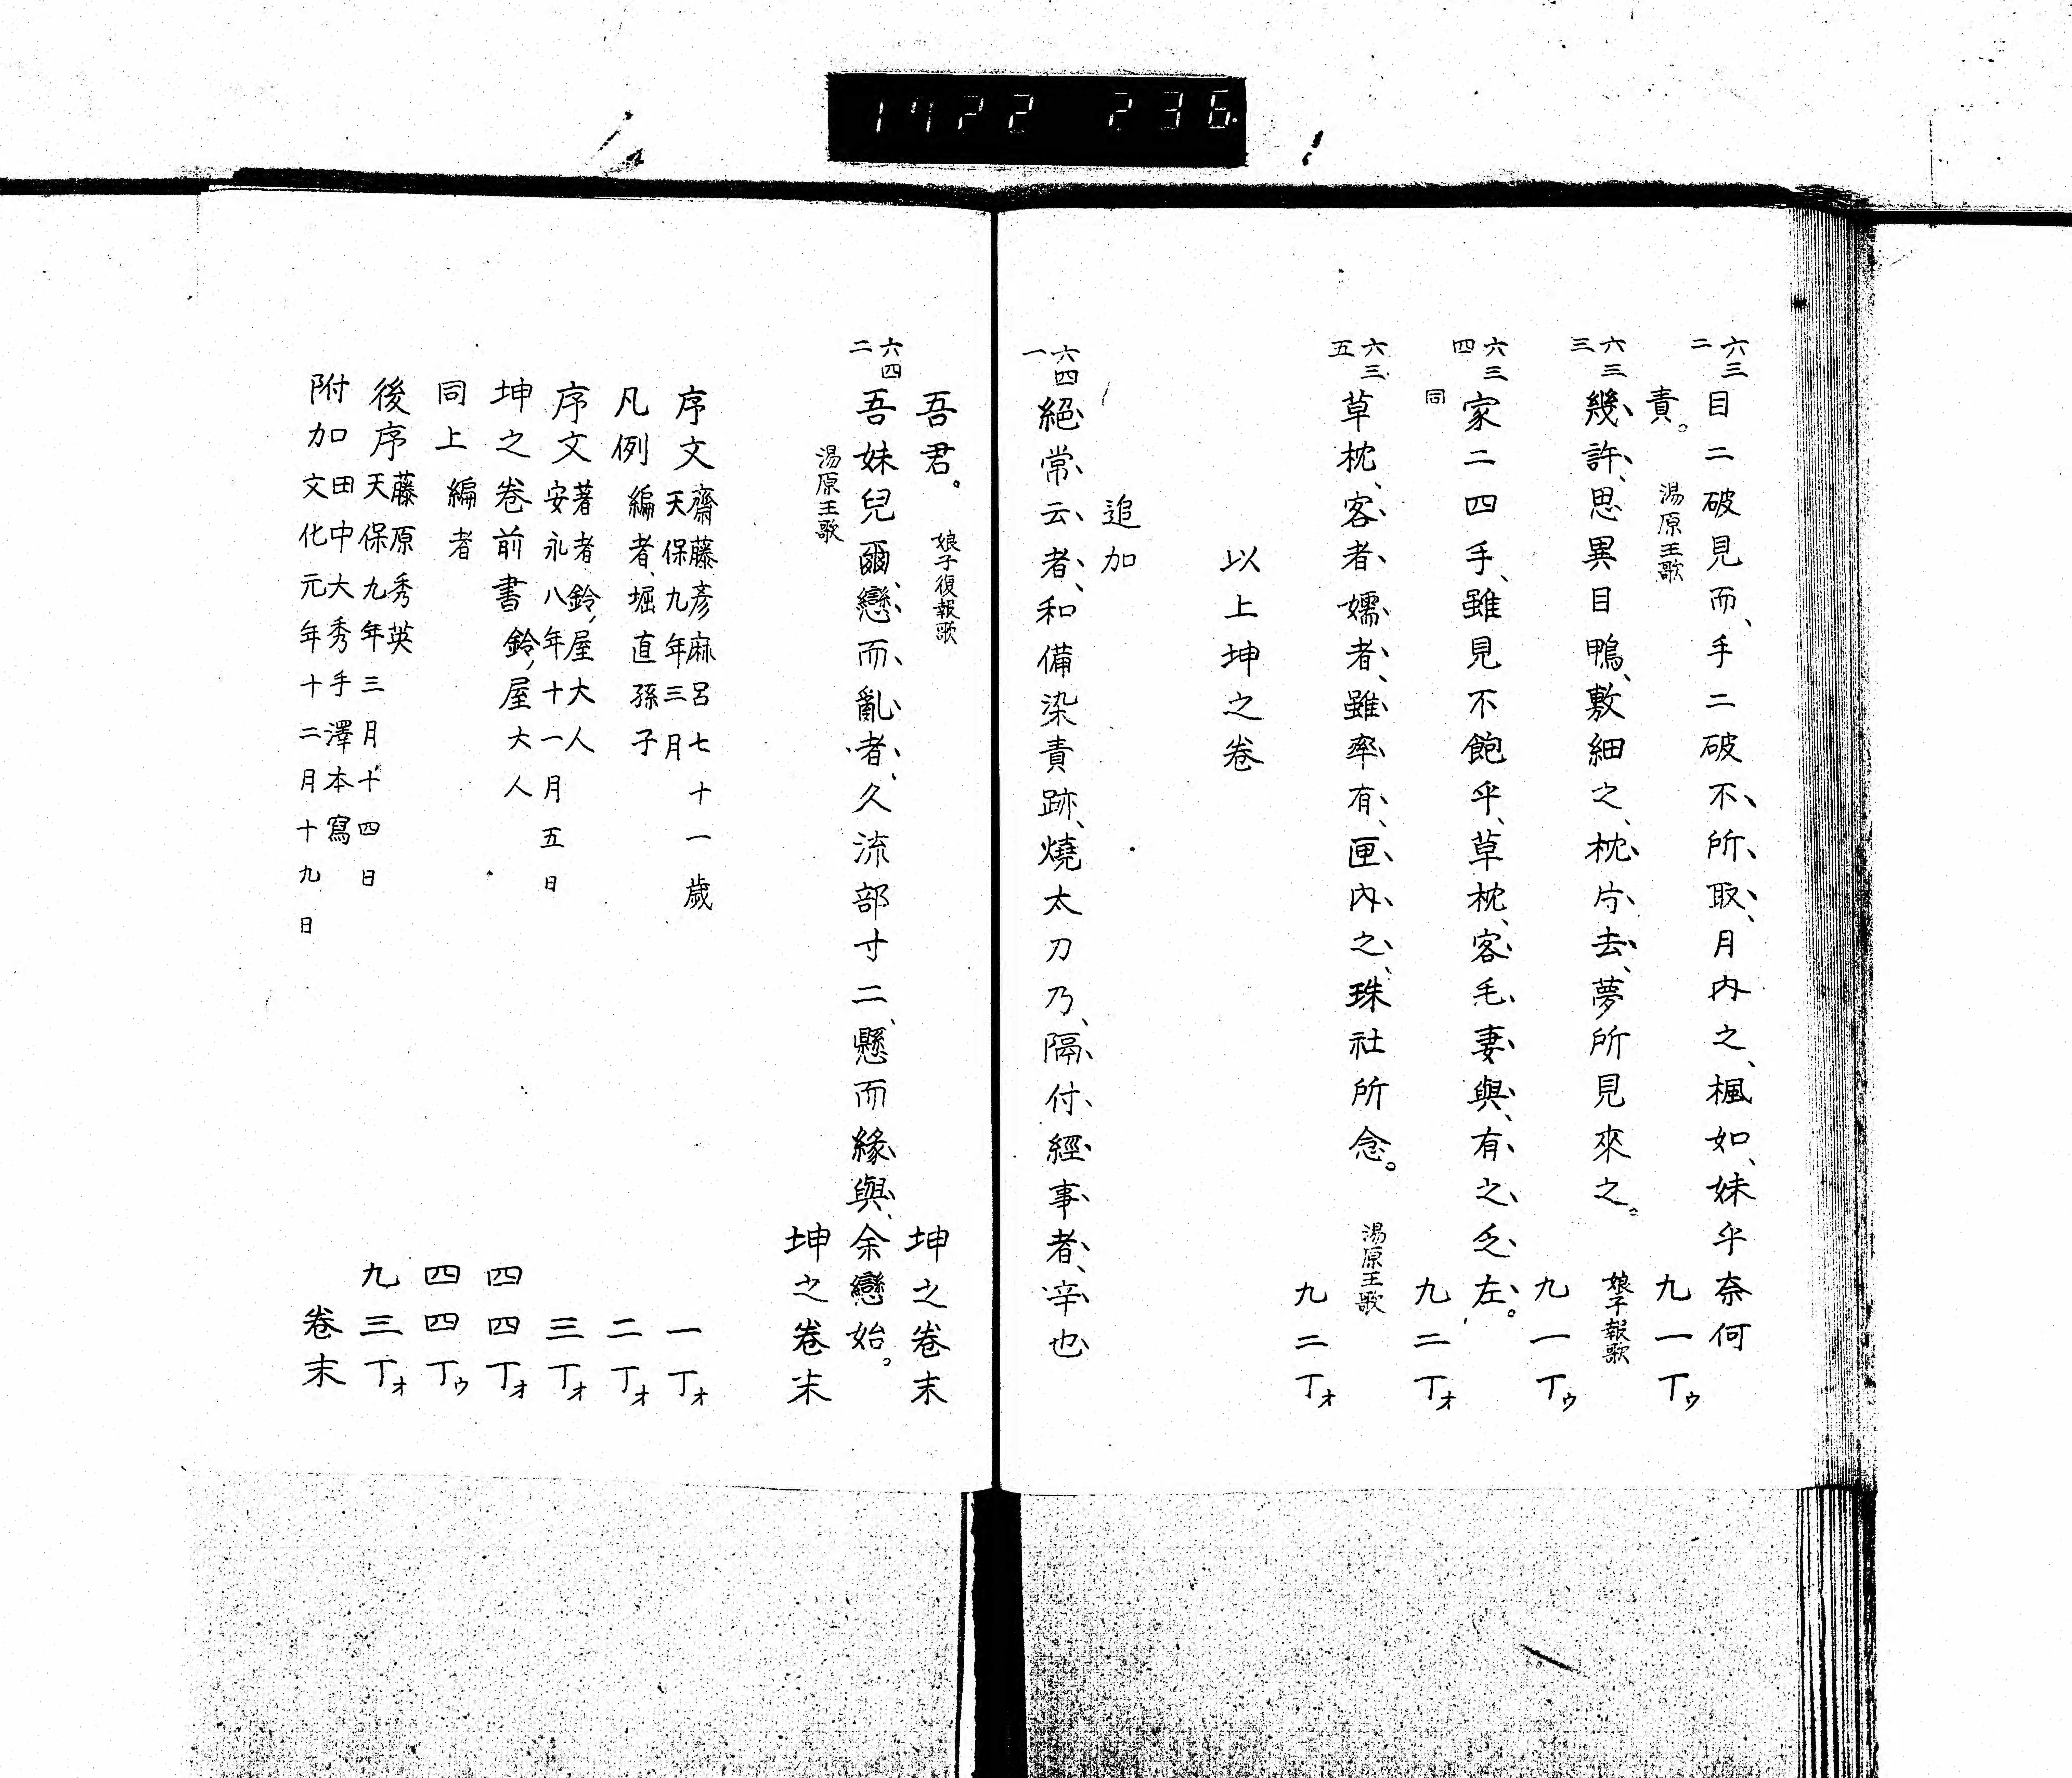 1722 236
六三二 目二破見而、手二破不所取、月内之、楓如、妹乎奈何
責。 湯原王歌 九一丁ゥ
六三三 幾許、思異目鴨、敷細之、枕片去、夢所見來之。 娘子報歌
九一丁ゥ
六三四 家二四手、雖見不飽乎、草枕、客毛妻與、有之乏左。
同 九二丁ォ
六三五 草枕、客者嬬者、雖率有、匣内之、珠社所念。 湯原王歌
九二丁ォ
以上坤之卷
追加
六四一 絕常云者、和備染責跡、燒太刀乃、隔付經事者、辛也
吾君。 娘子復報歌 坤之卷末
六四二 吾妹兒爾、戀而亂者、久流部寸二、懸而緣與、余戀始。
湯原王歌 坤之卷末
序文 齋藤彥麻呂七十一歲 天保九年三月 一丁ォ
凡例 編者、堀直孫子 二丁ォ
序文 著者鈴、屋大人 安永八年十一月五日 三丁ォ
坤之卷前書 鈴、屋大人 四四丁ォ
同上 編者 四四丁ゥ
後序 藤原秀英 天保九年三月十四日 九三丁ォ
附加 田中大秀手澤本寫 文化元年十二月十九日 卷末